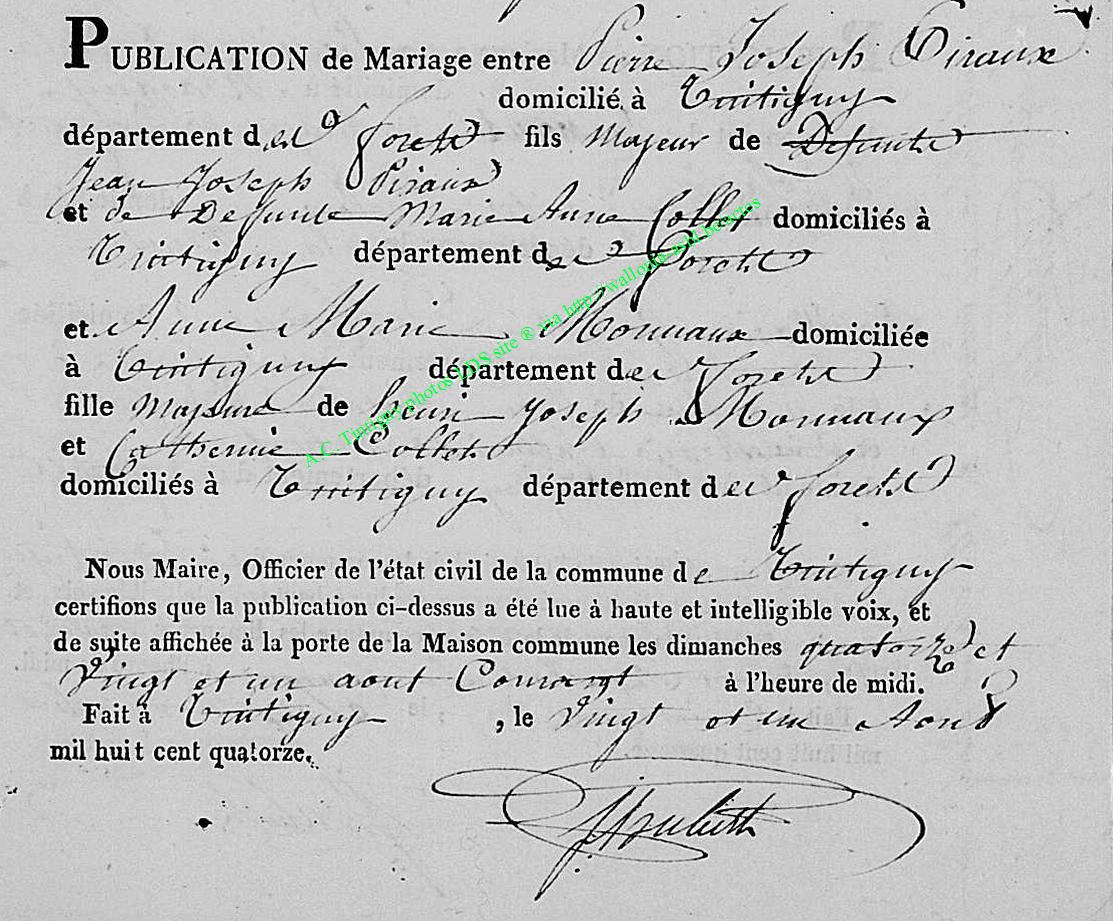 PUBLICATION de Mariage entre Pierre Joseph Piraux
domicilié à Tintigny
département des forets fils Majeur de Defunte
Jean Joseph Piraux
et de Defunte Marie Anne Collet domiciliés à
Tintigny département des forets
et Anne Marie Monnaux domiciliée
à Tintigny département des forets
fille Majeure de henri Joseph Monnaux
et Catherine Collet
domiciliés à Tintigny département des forets
Nous Maire, Officier de l'état civil de la commune de Tintigny
certifions que la publication ci-dessus a été lue à haute et intelligible voix, et
de suite affichée à la porte de la Maison commune les dimanches quatorze et
Vingt et un aout Courant à l'heure de midi.
Fait à Tintigny, le Vingt et un Aout
mil huit cent quatorze.
A.C. Tintigny photos LDS site ® via http://wallonia.asbl.